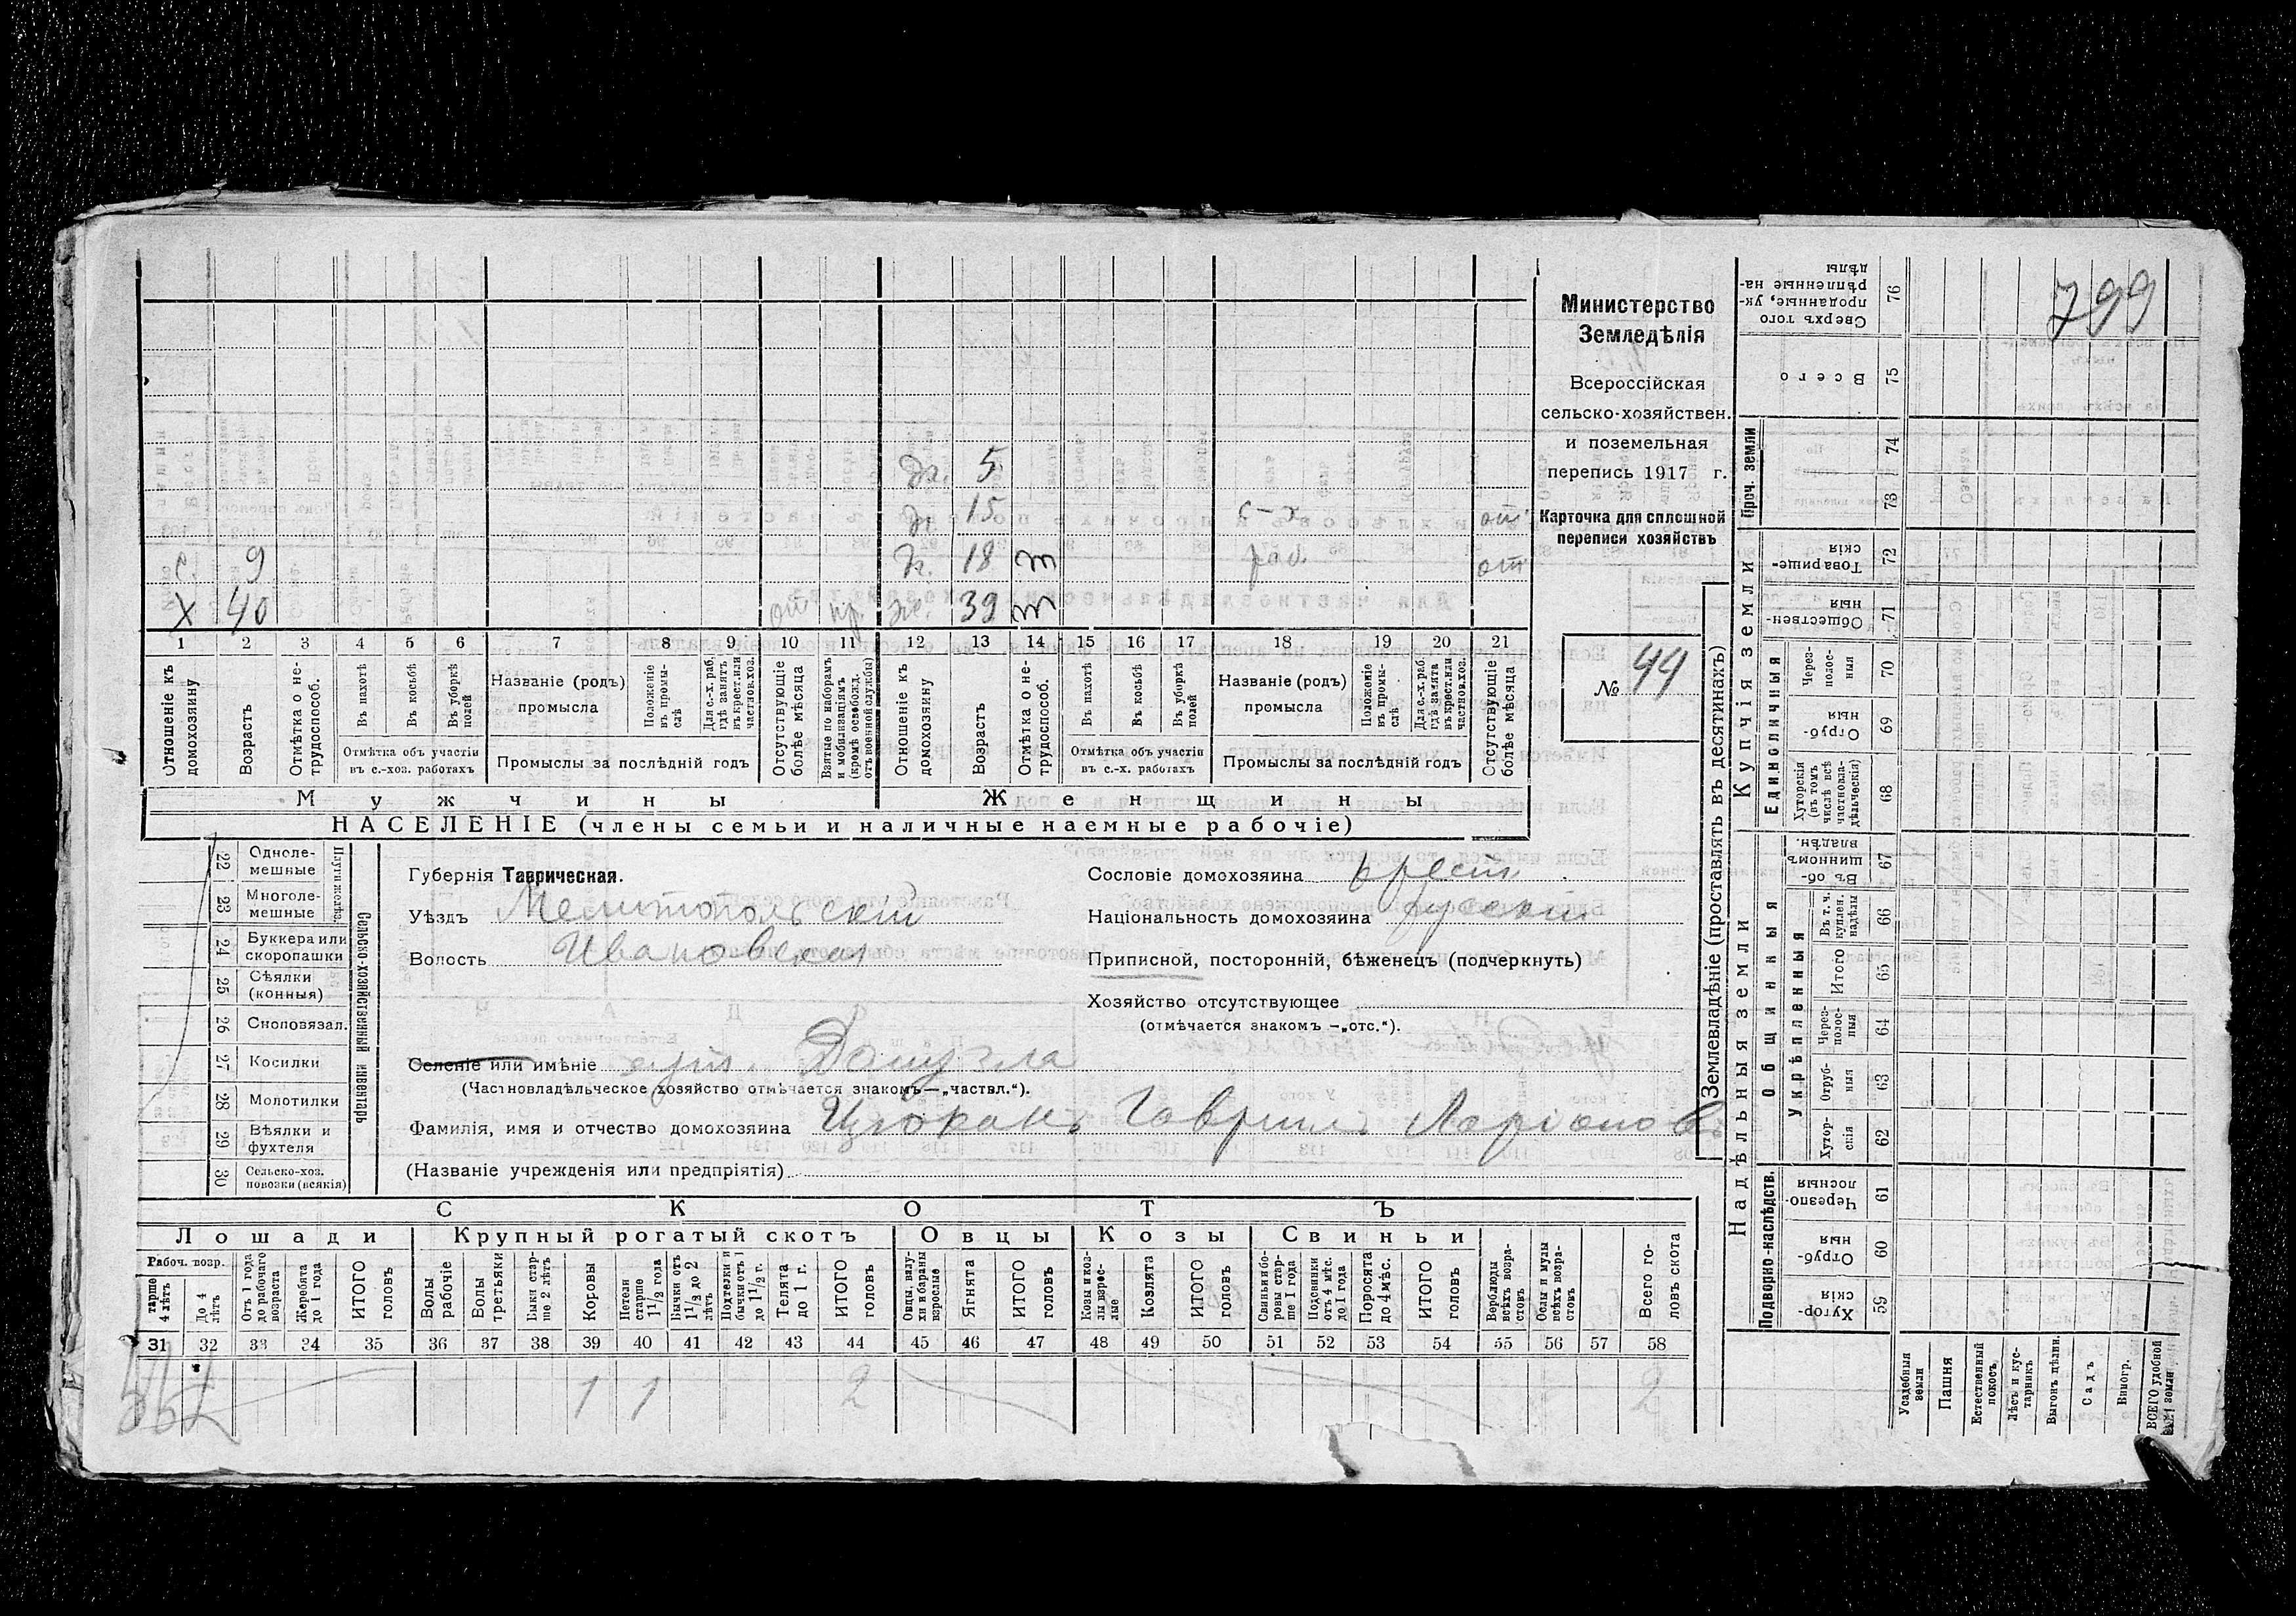 799
Министерство
Земледѣлія
Всероссійская
сельско-хозяйствен.
и поземельная
перепись 1917 г.
Карточка для сплошной
переписи хозяйствъ
№ 44
да. 5
д. 15 с-х от
д. 18 т раб. от
с. 9
х 40 от пр. же. 39 т
1 2 3 4 5 6 7 8 9 10 11 12 13 14 15 16 17 18 19 20 21
Отношеніе къ домохозяину
Возрастъ
Отмѣтка о не-трудоспособ.
Въ пахотѣ
Въ косьбѣ
Въ уборкѣ полей
Отмѣтка объ участіи въ с.-хоз. работахъ
Названіе (родъ) промысла
Положеніе въ промы-слѣ
Для с.-х. раб. гдѣ занятъ въ крест. или частнов. хоз.
Промыслы за послѣдній годъ
Отсутствующіе болѣе мѣсяца
Взятые по наборамъ и мобилизаціямъ (кромѣ освобожд. отъ военной службы)
Отношеніе къ домохозяину
Возрастъ
Отмѣтка о не-трудоспособ.
Въ пахотѣ
Въ косьбѣ
Въ уборкѣ полей
Отмѣтка объ участіи въ с.-х. работахъ
Названіе (родъ) промысла
Положеніе въ промы-слѣ
Для с.-х. раб. гдѣ занята въ крест. или частнов. хоз.
Промыслы за послѣдній годъ
Отсутствующіе болѣе мѣсяца
Мужчины Женщины
НАСЕЛЕНІЕ (члены семьи и наличные наемные рабочіе)
22 Одноле-мешные
23 Многоле-мешные
24 Буккера или скоропашки
25 Сѣялки (конныя)
26 Сноповязал.
27 Косилки
28 Молотилки
29 Вѣялки и фухтеля
30 Сельско-хоз. повозки (всякія)
Сельско-хозяйственный инвентарь
Губернія Таврическая.
Уѣздъ Мелитопольскій
Волость Ивановская
Селеніе или имѣніе
(Частновладѣльческое хозяйство отмѣчается знакомъ—„частвл.“).
Фамилія, имя и отчество домохозяина Гаврилъ Ларіонов
(Названіе учрежденія или предпріятія)
Сословіе домохозяина крест.
Національность домохозяина русскій
Приписной, посторонній, бѣженецъ (подчеркнуть)
Хозяйство отсутствующее
(отмѣчается знакомъ —„отс.“).
СКОТЪ
Лошади Крупный рогатый скотъ Овцы Козы Свиньи
Рабоч. возр.
тарше 4 лѣтъ
До 4 лѣтъ
Отъ 1 года до рабочаго возраста
Жеребята до 1 года
ИТОГО головъ
Волы рабочіе
Волы третьяки
Быки стар-ше 2 лѣтъ
Коровы
Нетели старше 1 1/2 года
Бычки отъ 1 1/2 до 2 лѣтъ
Подтелки и бычки отъ 1 до 1 1/2 г.
Телята до 1 г.
ИТОГО головъ
Овцы, валу-хи и бараны взрослые
Ягнята
ИТОГО головъ
Козы и коз-лы взрос-лые
Козлята
ИТОГО головъ
Свиньи и бо-ровы стар-ше 1 года
Подсвинки отъ 4 мѣс. до 1 года
Поросята до 4 мѣс.
ИТОГО головъ
Верблюды всѣхъ возра-стовъ
Ослы и мулы всѣхъ возра-стовъ
Всего го-ловъ скота
31 32 33 34 35 36 37 38 39 40 41 42 43 44 45 46 47 48 49 50 51 52 53 54 55 56 57 58
1 1 2 2
Землевладѣніе (проставлять въ десятинахъ)
Надѣльныя земли
Купчія земли
Проч. земли
Подворно-наслѣдств.
Общинныя
Укрѣпленныя
Единоличныя
Сверхъ того проданные, ук-рѣпленные на-дѣлы 76
Всего 75
74
73
Товарище-скія 72
Обществен-ныя 71
Через-полос-ныя 70
Отруб-ныя 69
Хуторскія (въ томъ числѣ всѣ частновла-дѣльческія) 68
Въ об-щинномъ владѣн. 67
Въ т. ч. куплен. надѣлы 66
Итого 65
Через-полос-ныя 64
Отруб-ныя 63
Хутор-скія 62
Черезпо-лосныя 61
Отруб-ныя 60
Хутор-скія 59
Усадебныя земли
Пашня
Естественный покосъ
Лѣсъ и кус-тарникъ
Выгонъ дѣлин.
Садъ
Виногр.
ВСЕГО удобной земли